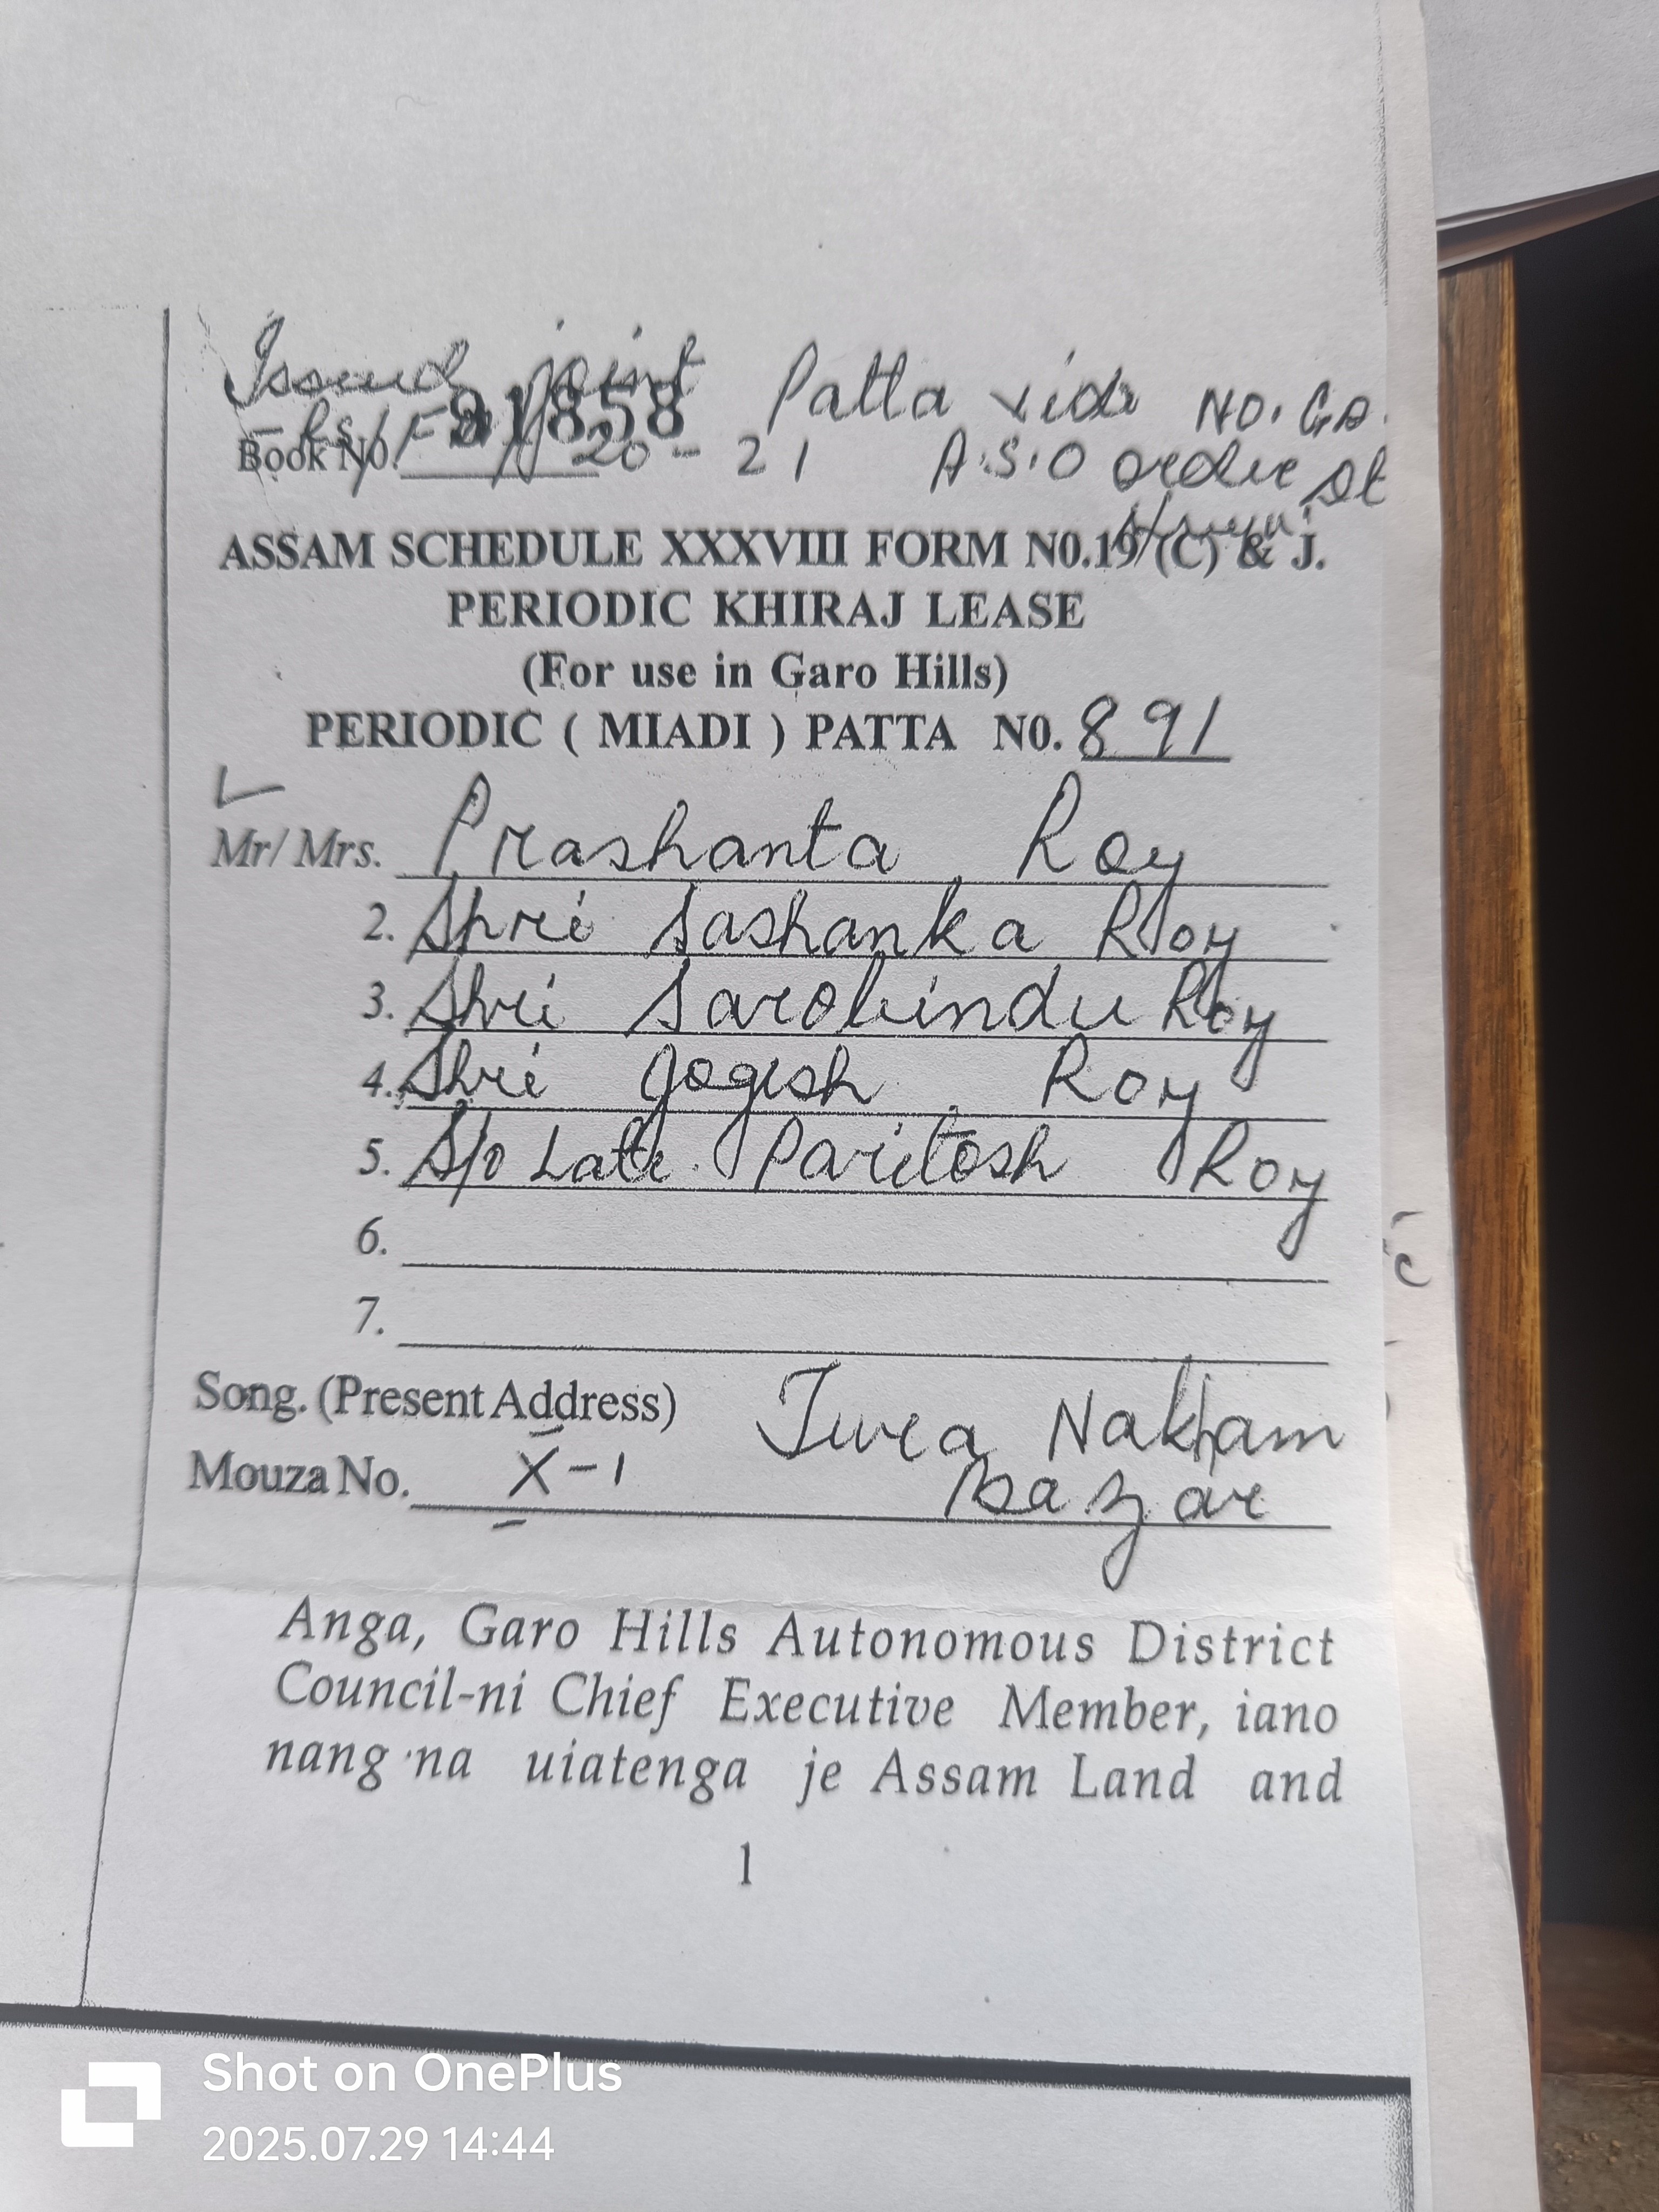 Issued joint Patta vide NO. GA.
91858
Book No. 20-21 A.S.O order dt
ASSAM SCHEDULE XXXVIII FORM N0.19 (C) & J.
PERIODIC KHIRAJ LEASE
(For use in Garo Hills)
PERIODIC ( MIADI ) PATTA N0. 891
Mr/ Mrs. Prashanta Roy
2. Shri Sashanka Roy
3. Shri Sarobindu Roy
4. Shri Jogesh Roy
5. S/o Late Paritosh Roy
6.
7.
Song. (Present Address) Tura Nakham
Mouza No. X-1 Bazar
Anga, Garo Hills Autonomous District
Council-ni Chief Executive Member, iano
nang'na uiatenga je Assam Land and
1
Shot on OnePlus
2025.07.29 14:44